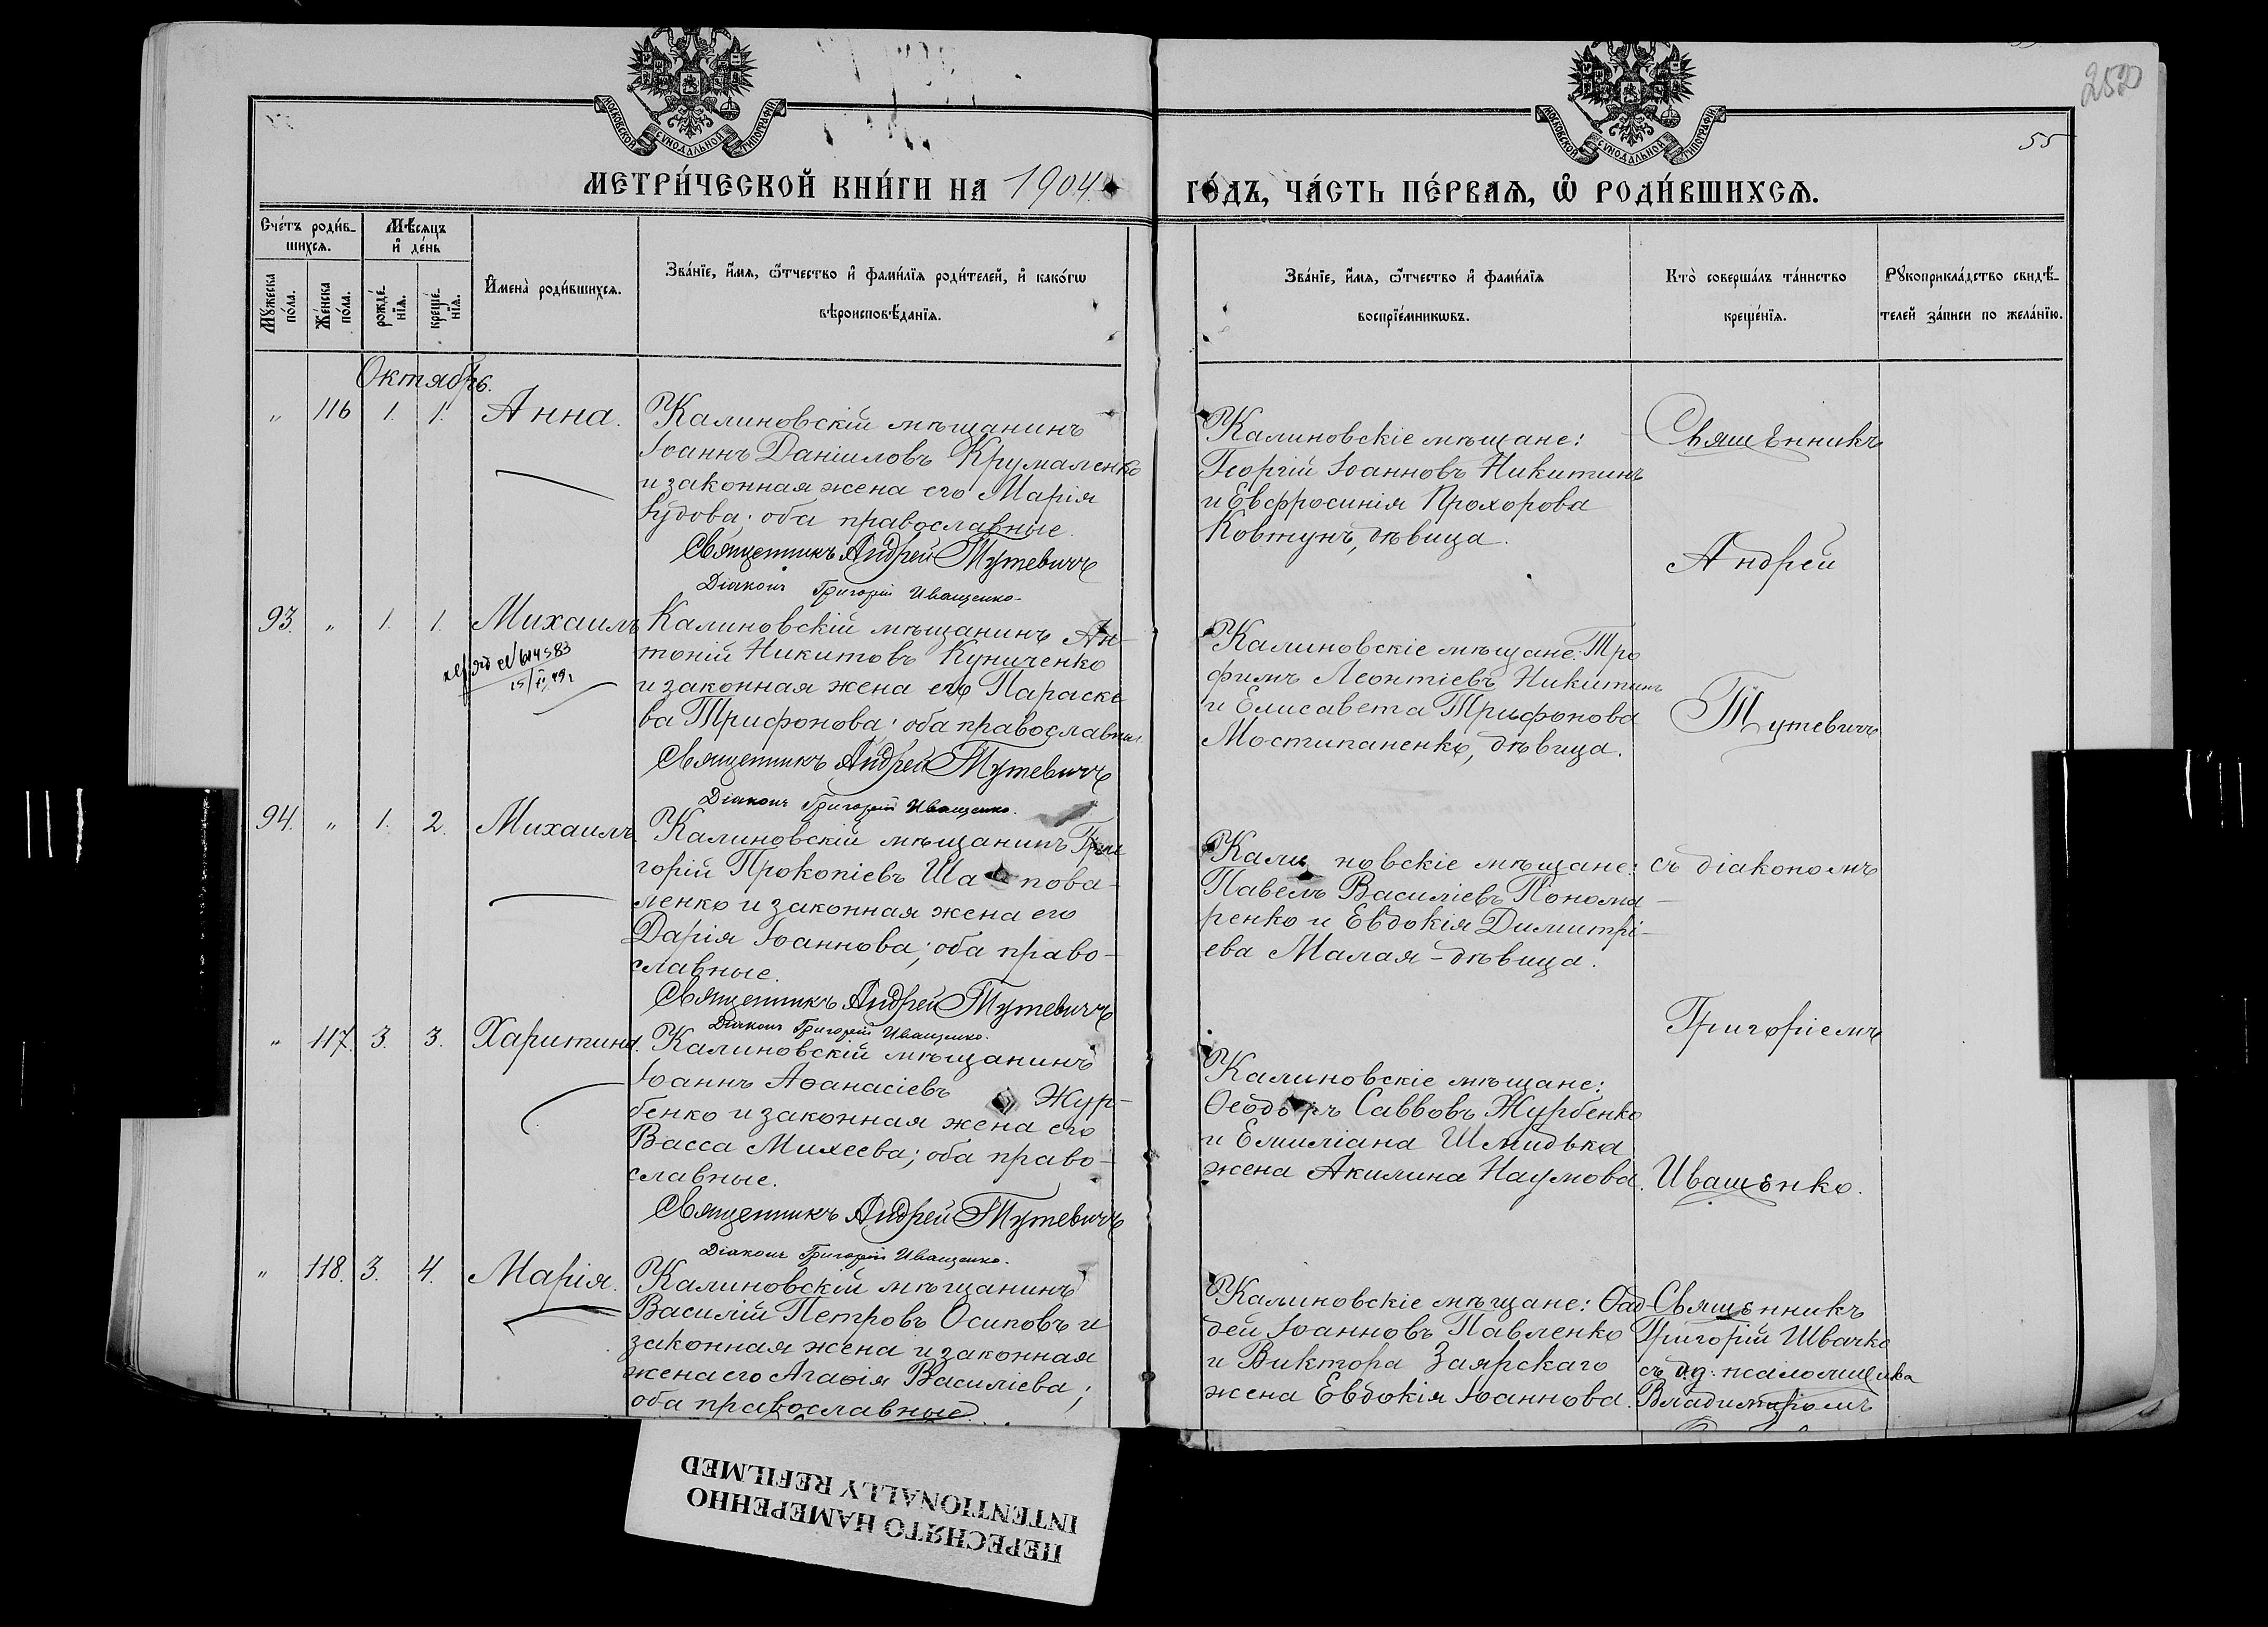 МОСКОВСКОЙ СѴНОДАЛЬНОЙ ТИПОГРАФІИ
МОСКОВСКОЙ СѴНОДАЛЬНОЙ ТИПОГРАФІИ
252
55
МЕТРИ́ЧЕСКОЙ КНИ́ГИ НА 1904
ГО́ДЪ, ЧА́СТЬ ПЕ́РВАѦ, Ѽ РОДИ́ВШИХСѦ.
Сче́тъ роди́в-
шихсѧ.
Мꙋ́жеска
по́ла.
Же́нска
по́ла.
Мѣ́сѧцъ
и҆ де́нь
рожде́-
нїѧ.
креще́-
нїѧ.
И҆мена̀ роди́вшихсѧ.
Зва́нїе, и҆́мѧ, ѻ҆́тчество и҆ фами́лїѧ роди́телей, и҆ како́гѡ
вѣроисповѣ́данїѧ.
Зва́нїе, и҆́мѧ, ѻ҆́тчество и҆ фами́лїѧ
воспрїе́мникѡвъ.
Кто̀ соверша́лъ та́инство
креще́нїѧ.
Рꙋкоприкла́дство свидѣ́-
телей за́писи по жела́нїю.
Октябрь.
„ 116 1. 1. Анна.
Калиновскій мѣщанинъ
Іоаннъ Даніиловъ Крумаленко
и законная жена его Марія
Іудова; оба православные.
Священникъ Андрей Тутевичъ
Діаконъ Григорій Иващенко.
Калиновскіе мѣщане:
Георгій Іоанновъ Никитинъ
и Евфросинія Прохорова
Ковтунъ, дѣвица.
Священникъ
Андрей
93. „ 1. 1. Михаилъ
Калиновскій мѣщанинъ Ан-
тоній Никитовъ Куниченко
и законная жена его Параске
ва Трифонова; оба православные
Священникъ Андрей Тутевичъ
Діаконъ Григорій Иващенко.
Калиновскіе мѣщане: Тро
фимъ Леонтіевъ Никитинъ
и Елисавета Трифонова
Мостипаненко, дѣвица.
Тутевичъ
94. „ 1. 2. Михаилъ.
Калиновскій мѣщанинъ Гри
горій Прокопіевъ Ша пова-
ленко и законная жена его
Дарія Іоаннова; оба право-
славные.
Священникъ Андрей Тутевичъ
Діаконъ Григорій Иващенко.
Кали новскіе мѣщане:
Павелъ Василіевъ Понома-
ренко и Евдокія Димитрі-
ева Малая - дѣвица.
съ діакономъ
Григоріемъ
„ 117. 3. 3. Харитина.
Калиновскій мѣщанинъ
Іоаннъ Аѳанасіевъ Жур-
бенко и законная жена его
Васса Михеева; оба право-
славные.
Священникъ Андрей Тутевичъ
Діаконъ Григорій Иващенко.
Калиновскіе мѣщане:
Ѳеодоръ Саввовъ Журбенко
и Емиліана Шмидька
жена Акилина Наумова.
Иващенко.
„ 118. 3. 4. Марія.
Калиновскій мѣщанинъ
Василій Петровъ Осиповъ и
законная жена и законная
жена его Агаѳія Василіева;
оба православные
Калиновскіе мѣщане: Ѳад-
дей Іоанновъ Павленко
и Виктора Заярскаго
жена Евдокія Іоаннова.
Священникъ
Григорій Швачко
съ и.д. псаломщика
Владимиромъ
ПЕРЕСНЯТО НАМЕРЕННО
INTENTIONALLY REFILMED